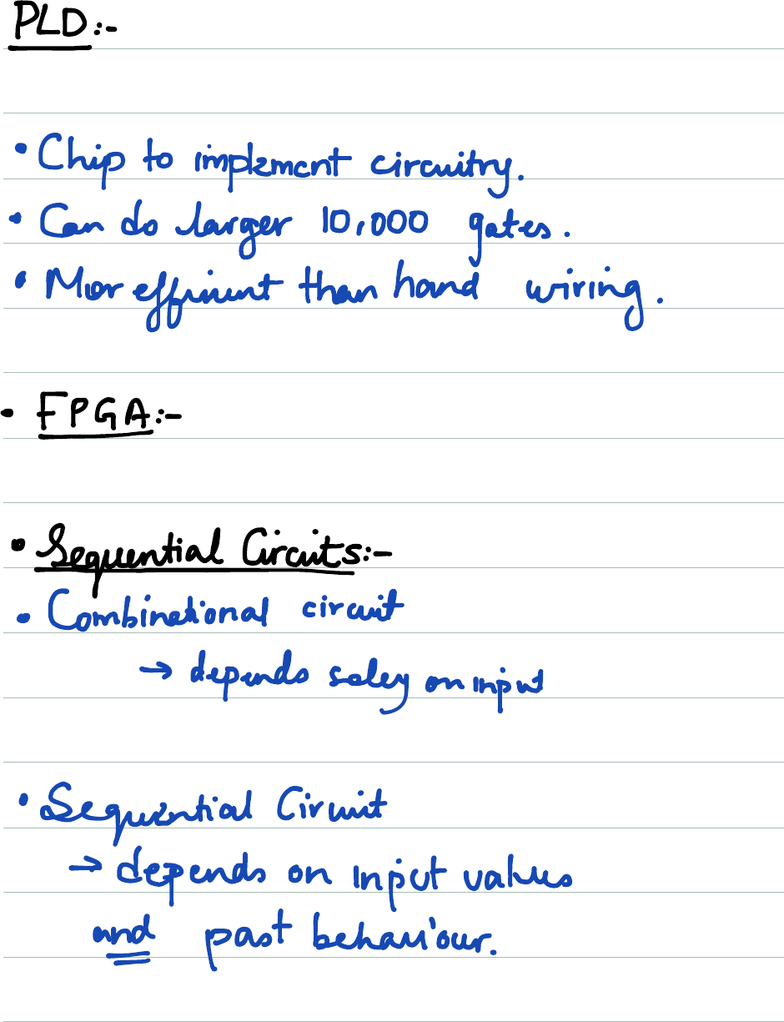 PLD:-
• Chip to implement circuitry.
• Can do larger 10,000 gates.
• Mor efficient than hand wiring.
• FPGA:-
• Sequential Circuits:-
• Combinational circuit
→ depends soley on input
• Sequential Circuit
→ depends on input values
and past behaviour.